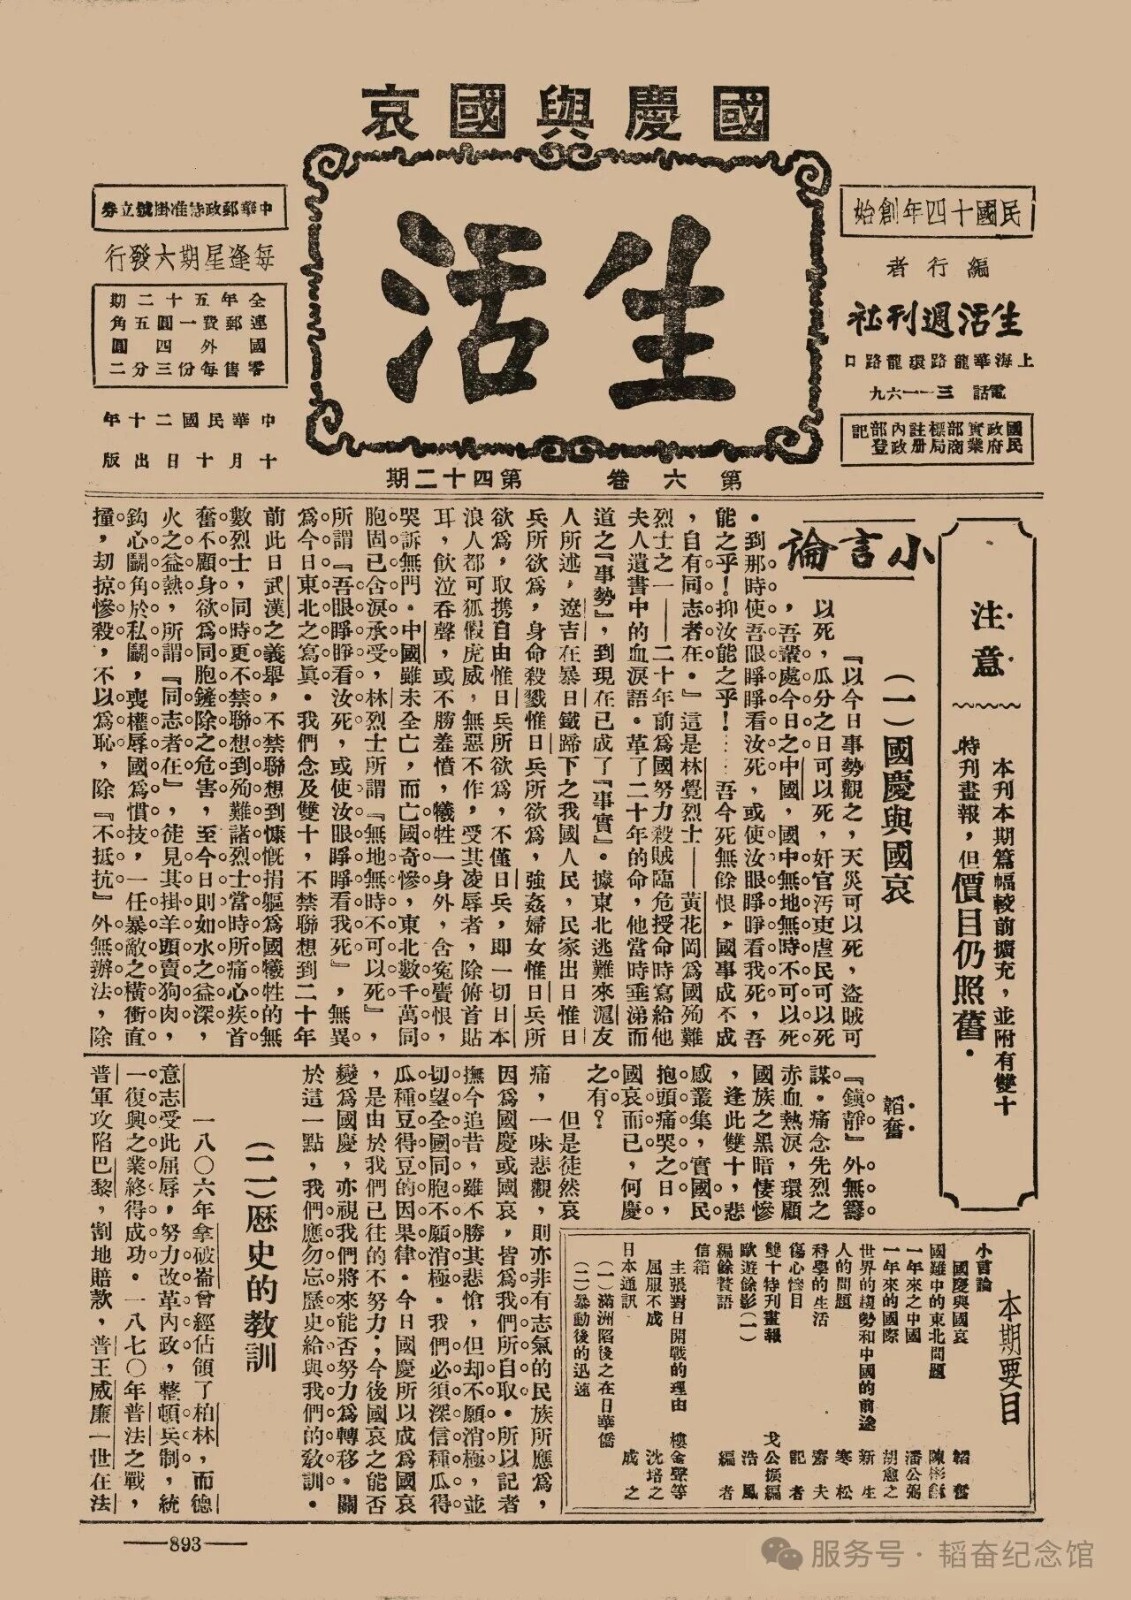 國慶與國哀
生活
第六卷　第四十二期
民國十四年創始
編行者
生活週刊社
上海華龍路環龍路口
電話　三一一六九
國民政府實業部商標局註册內政部登記
中華郵政特准掛號立券
每逢星期六發行
全年五十二期
連郵費一圓五角
國外四圓
零售每份三分二
中華民國二十年
十月十日出版
注意
本刊本期篇幅較前擴充，並附有雙十
特刊畫報，但價目仍照舊．
小言論
（一）國慶與國哀
韜奮
『以今日事勢觀之，天災可以死，盜賊可
以死，瓜分之日可以死，奸官污吏虐民可以死
，吾輩處今日之中國，國中無地無時不可以死
．到那時使吾眼睜睜看汝死，或使汝眼睜睜看我死，吾
能之乎！抑汝能之乎！……吾今死無餘恨，國事成不成
，自有同志者在．』這是林覺烈士——黃花岡為國殉難
烈士之一——二十年前為國努力殺賊臨危授命時寫給他
夫人遺書中的血淚語．革了二十年的命，他當時垂涕而
道之『事勢』，到現在已成了『事實』．據東北逃難來滬友
人所述，遼吉在暴日鐵蹄下之我國人民，民家出日惟日
兵所欲為，身命殺戮惟日兵所欲為，強姦婦女惟日兵所
欲為，取攜自由惟日兵所欲為，不僅日兵，即一切日本
浪人都可狐假虎威，無惡不作，受其凌辱者，除俯首貼
耳，飲泣吞聲，或不勝羞憤，犧牲一身外，含冤賫恨，
哭訴無門．中國雖未全亡，而亡國奇慘，東北數千萬同
胞固已含淚承受，林烈士所謂『無地無時不可以死』，
所謂『吾眼睜睜看汝死，或使汝眼睜睜看我死』，無異
為今日東北之寫真．我們念及雙十，不禁聯想到二十年
前此日武漢之義舉，不禁聯想到慷慨捐軀為國犧牲的無
數烈士，同時更不禁聯想到殉難諸烈士當時所痛心疾首
奮不顧身欲為同胞鏟除之危害，至今日則如水之益深，
火之益熱，所謂『同志者在』，徒見其掛羊頭賣狗肉，
鈎心鬭角於私鬭，喪權辱國為慣技，一任暴敵之橫衝直
撞，刧掠慘殺，不以為恥，除『不抵抗』外無辦法，除
『鎮靜』外無籌
謀．痛念先烈之
赤血熱淚，環顧
國族之黑暗悽慘
，逢此雙十，悲
感叢集，實國民
抱頭痛哭之日，
國哀而已，何慶
之有？
但是徒然哀
痛，一味悲觀，則亦非有志氣的民族所應為，
因為國慶或國哀，皆為我們所自取．所以記者
撫今追昔，雖不勝其悲愴，但却不願消極，並
切望全國同胞不願消極．我們必須深信種瓜得
瓜種豆得豆的因果律．今日國慶所以成為國哀
，是由於我們已往的不努力；今後國哀之能否
變為國慶，亦視我們將來能否努力為轉移．關
於這一點，我們應勿忘歷史給與我們的敎訓．
（二）歷史的敎訓
一八〇六年拿破崙曾經佔領了柏林，而德
意志受此屈辱，努力改革內政，整頓兵制，統
一復興之業終得成功．一八七〇年普法之戰，
普軍攻陷巴黎，割地賠款，普王威廉一世在法
本期要目
小言論
國慶與國哀　韜奮
國難中的東北問題　陳彬龢
一年來之中國　潘公弼
一年來的國際　胡愈之
世界的趨勢和中國的前途　新生
人的問題　寒松
科學的生活　齋夫
傷心慘目　記者
雙十特刊畫報　戈公振編
歐遊餘影（一）　浩風
編餘贅語　編者
信箱
主張對日開戰的理由　樓金聲等
屈服不成　沈培之
日本通訊　成之
（一）滿洲陷後之在日華僑
（二）暴動後的迅速
893
服务号·韬奋纪念馆